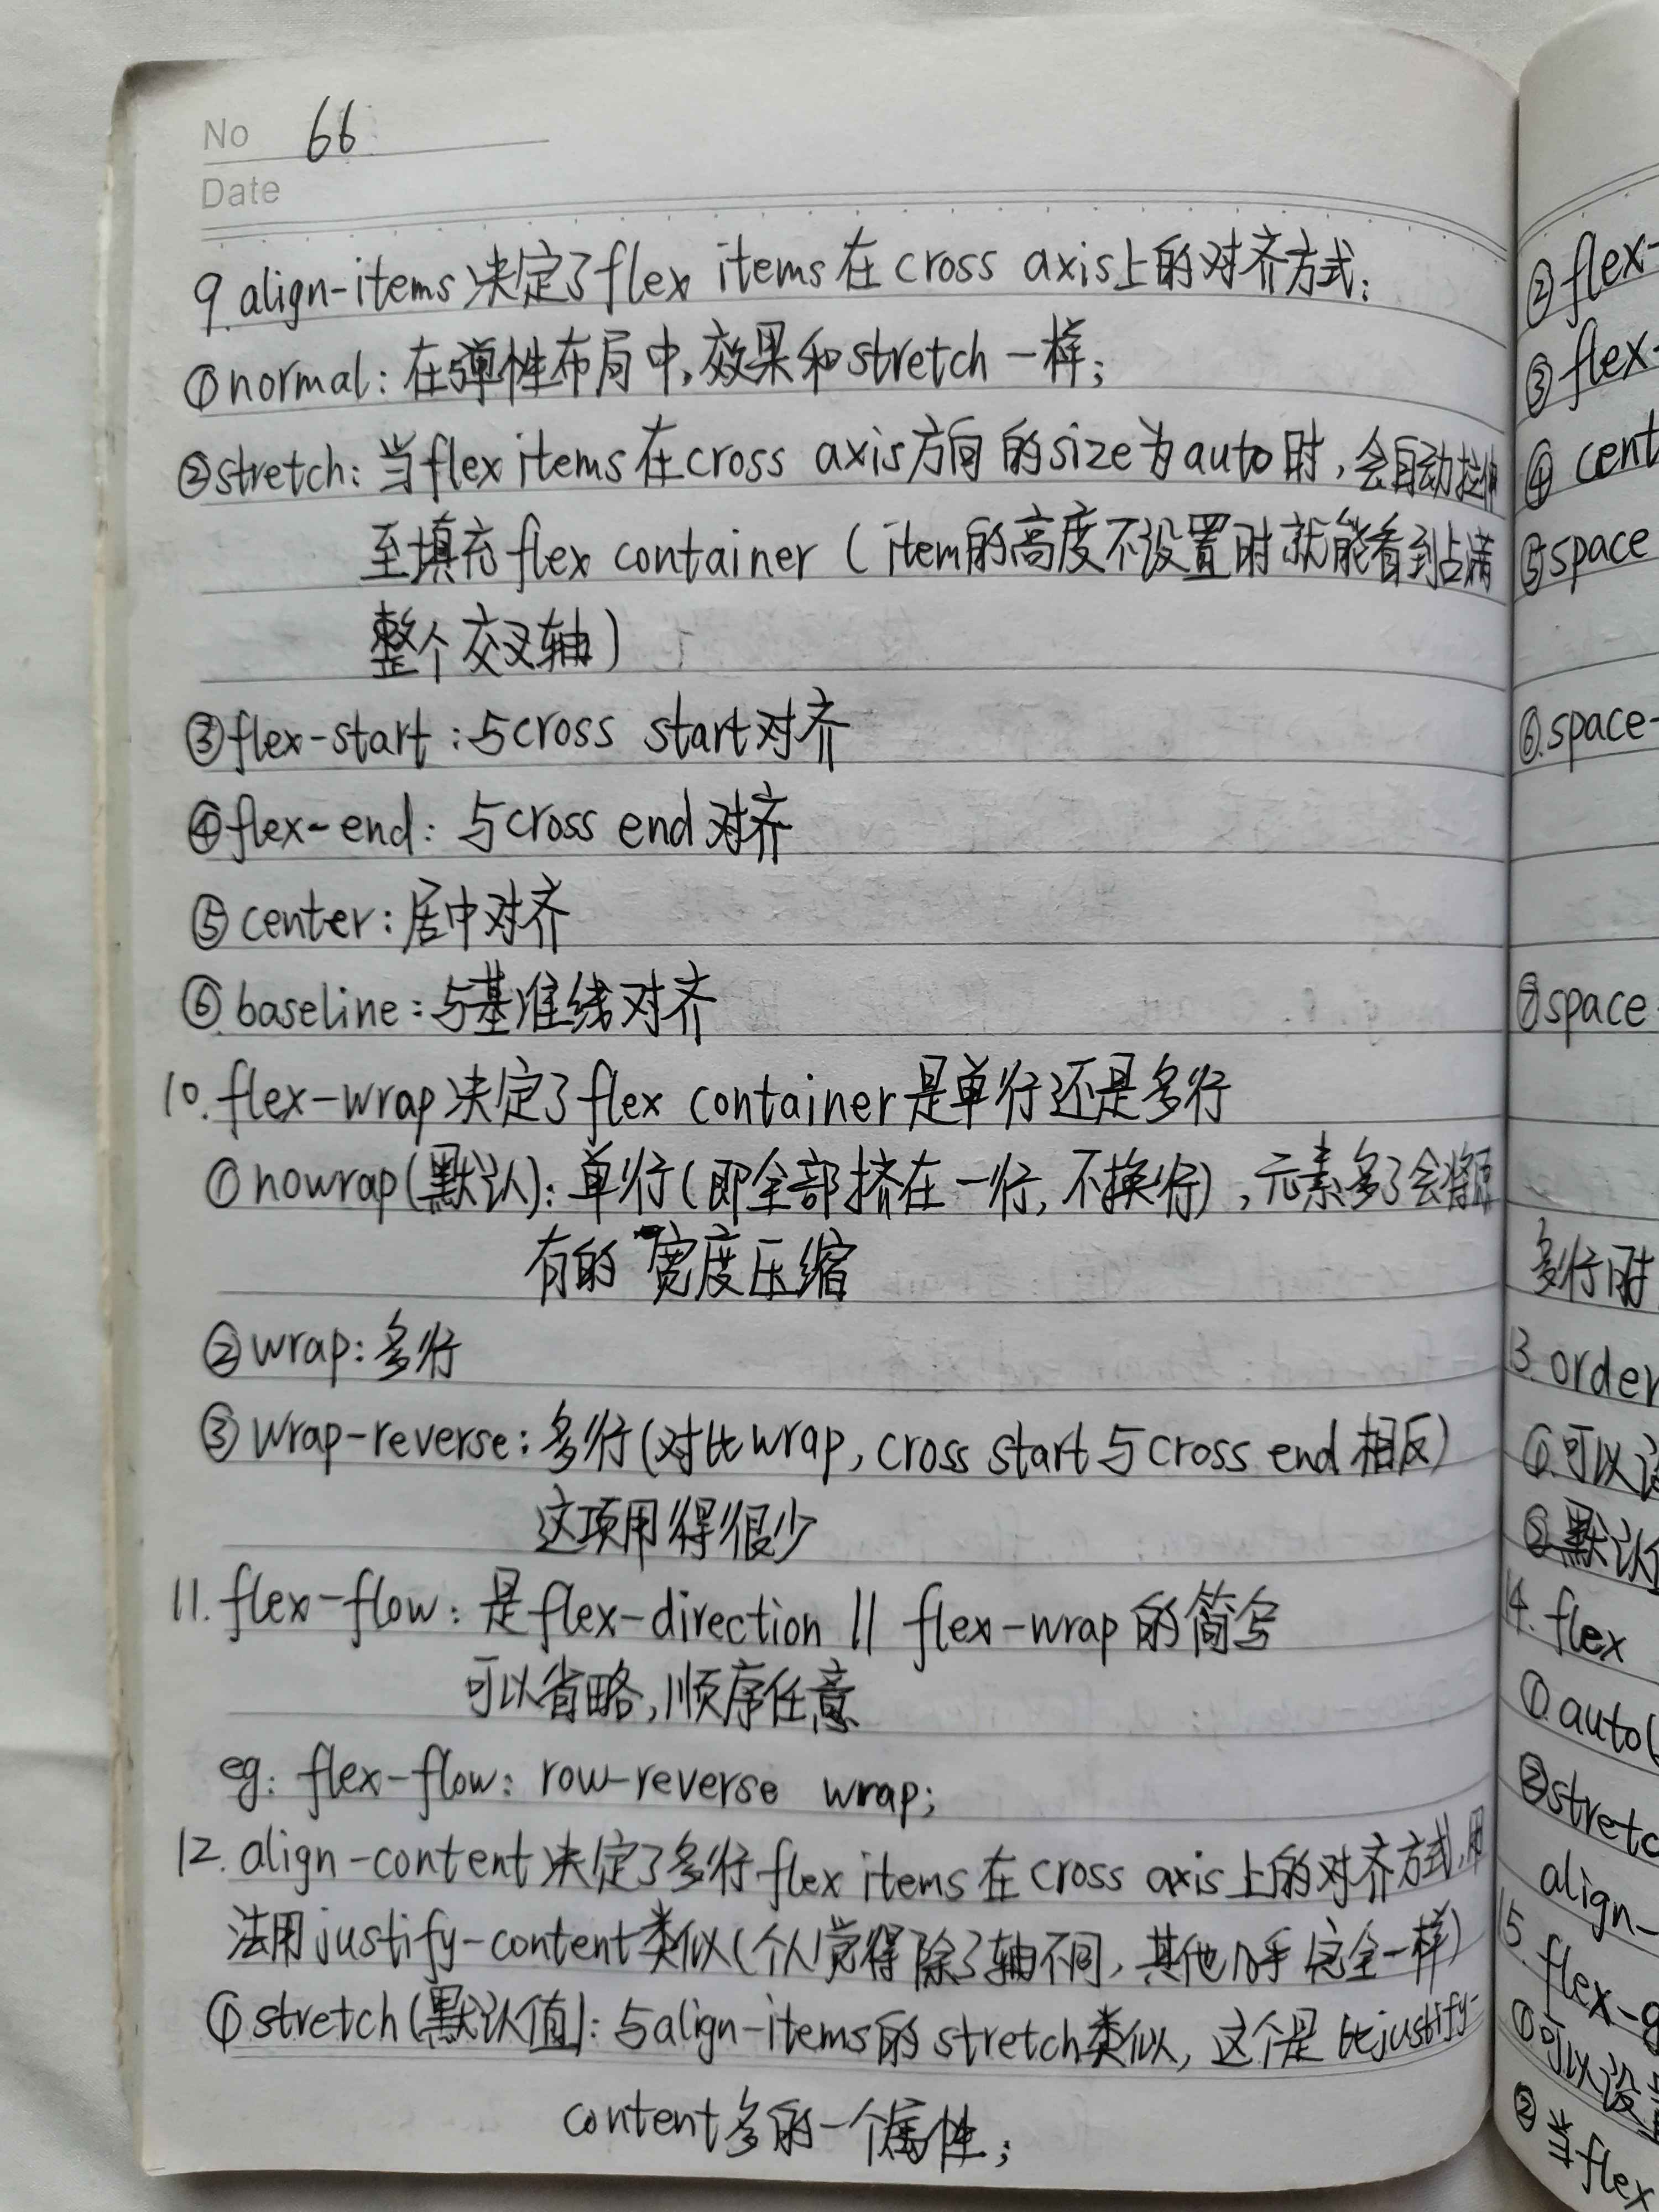 No 66
Date
9. align-items决定了flex items在cross axis上的对齐方式:
①normal: 在弹性布局中,效果和stretch一样;
②stretch: 当flex items在cross axis方向的size为auto时,会自动拉伸
至填充flex container (item的高度不设置时就能看到占满
整个交叉轴)
③flex-start:与cross start对齐
④flex-end: 与cross end对齐
⑤center:居中对齐
⑥baseline:与基准线对齐
10. flex-wrap决定了flex container是单行还是多行
①nowrap(默认): 单行(即全部挤在一行, 不换行),元素多了会将原
有的宽度压缩
②wrap:多行
③wrap-reverse: 多行(对比wrap, cross start与cross end相反)
这项用得很少
11. flex-flow: 是flex-direction || flex-wrap的简写
可以省略,顺序任意
eg: flex-flow: row-reverse wrap;
12. align-content决定了多行flex items在cross axis上的对齐方式,用
法用justify-content类似(个人觉得除了轴不同,其他几乎完全一样)
①stretch(默认值): 与align-items的stretch类似, 这个是比justify-
content多的一个属性;
②flex-
③flex-
④cent
⑤space
⑥.space-
⑦space
多行时
13. order
①.可以设
②.默认值
14. flex
①.auto(
②stretc
align-
15. flex-g
①可以设置
②当flex